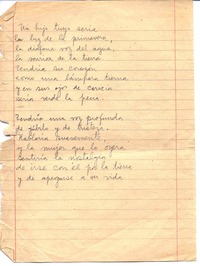 Un hijo tuyo sería
la luz de la primavera,
la diáfana voz del agua,
la sonrisa de la tierra
Tendría su corazón
como una lámpara tierna
y en sus ojos de
sería verde la pena.
Tendría una voz profunda
de júbilo y de tristeza.
Hablaría suavemente,
y la mujer que lo oyera
sentiría la nostalgia
de irse con él por la tierra
y de apegarse a su vida